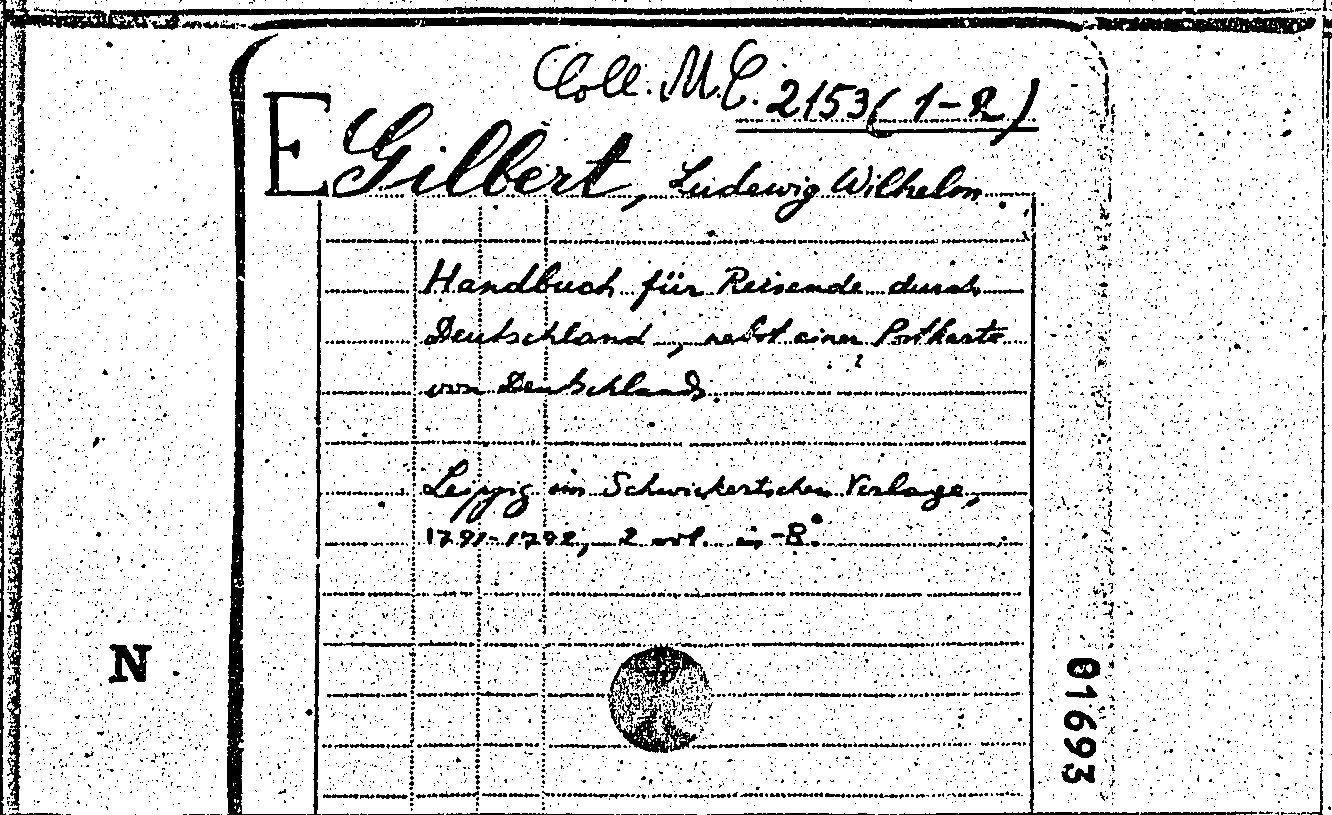 Coll. M.C. 2153(1-2)
E Gilbert, Ludewig Wilhelm
Handbuch für Reisende durch
Deutschland, nebst einer Postkarte
von Deutschland.
Leipzig im Schwickertschen Verlage,
1791-1792, 2 vol. in-8°.
N
01693